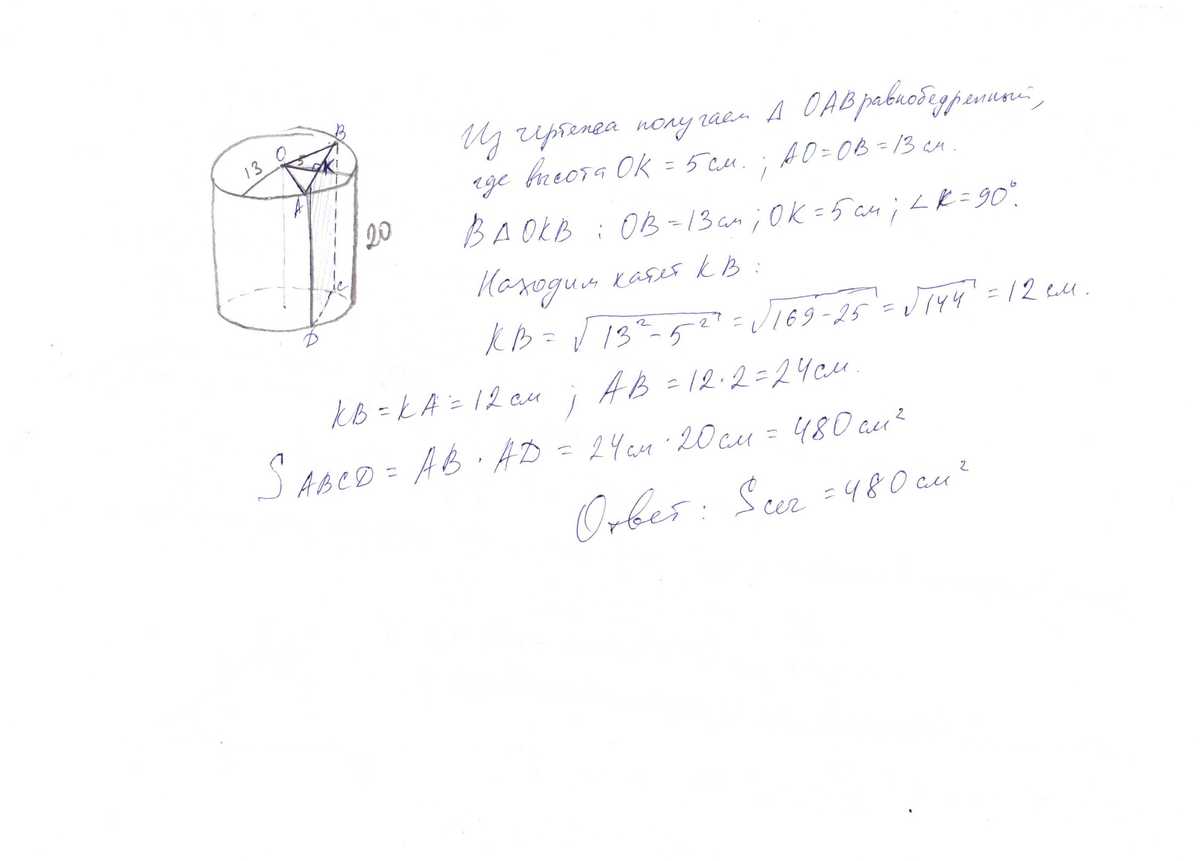 B
O
5
K
13
A
20
C
D
Из чертежа получаем Δ OAB равнобедренный,
где высота OK = 5 см. ; AO = OB = 13 см.
В Δ OKB : OB = 13 см ; OK = 5 см ; ∠K = 90°.
Находим катет KB :
KB = √13² - 5² = √169 - 25 = √144 = 12 см.
KB = KA = 12 см ; AB = 12 · 2 = 24 см.
S ABCD = AB · AD = 24 см · 20 см = 480 см²
Ответ : S сеч = 480 см²